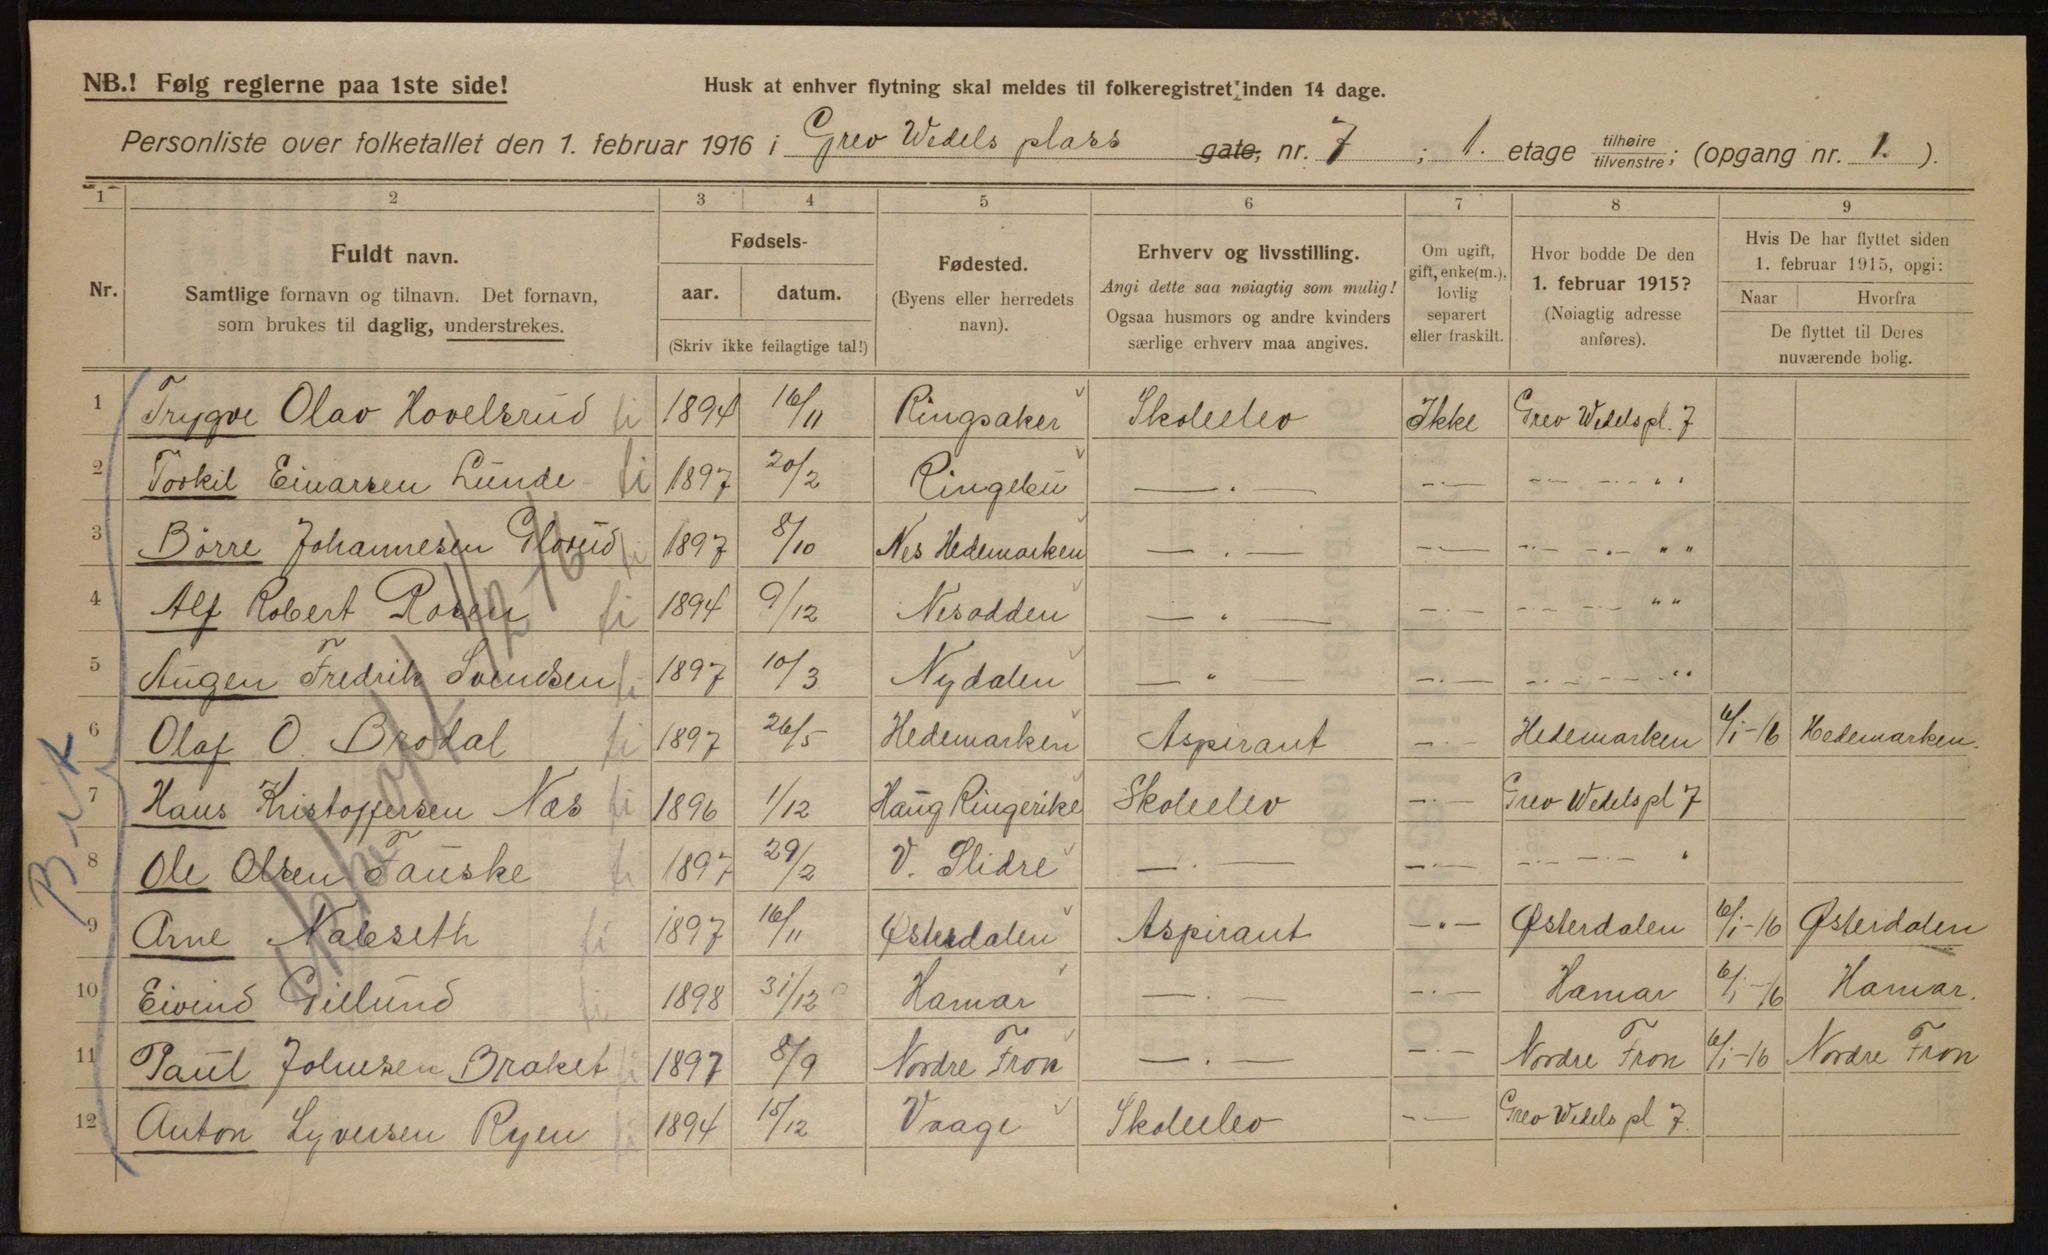 NB.! Følg reglerne paa 1ste side!
Husk at enhver flytning skal meldes til folkeregistret inden 14 dage.
Personliste over folketallet den 1. februar 1916 i Grev Wedels plass gate, nr. 7 ; 1. etage tilhøire tilvenstre; (opgang nr. 1. ).
1 2 3 4 5 6 7 8 9
Nr.
Fuldt navn.
Samtlige fornavn og tilnavn. Det fornavn,
som brukes til daglig, understrekes.
Fødsels-
aar. datum.
(Skriv ikke feilagtige tal!)
Fødested.
(Byens eller herredets
navn).
Erhverv og livsstilling.
Angi dette saa nøiagtig som mulig!
Ogsaa husmors og andre kvinders
særlige erhverv maa angives.
Om ugift,
gift, enke(m.),
lovlig
separert
eller fraskilt.
Hvor bodde De den
1. februar 1915?
(Nøiagtig adresse
anføres).
Hvis De har flyttet siden
1. februar 1915, opgi:
Naar Hvorfra
De flyttet til Deres
nuværende bolig.
1 Trygve Olav Hovelsrud 1894 16/11 Ringsaker Skoleelev Ikke Grev Wedels pl. 7
2 Torkil Einarsen Lunde 1897 20/2 Ringebu —„— —„— —„— —„— „ „
3 Børre Johannesen Glorud 1897 8/10 Nes Hedemarken —„— —„— —„— —„— „ „
4 Alf Robert Rosen 1894 9/12 Nesodden —„— —„— —„— —„— „ „
5 Augen Fredrik Svendsen 1897 10/3 Nydalen —„— —„— —„— —„— „ „
6 Olaf O. Brodal 1897 26/5 Hedemarken Aspirant —„— Hedemarken 6/1-16 Hedemarken.
7 Hans Kristoffersen Næs 1896 1/12 Haug Ringerike Skoleelev —„— Grev Wedels pl 7
8 Ole Olsen Fauske 1897 29/2 V. Slidre —„— —„— —„— —„— „
9 Arne Nabseth 1897 16/11 Østerdalen Aspirant —„— Østerdalen 6/1-16 Østerdalen
10 Eivind Gillund 1898 31/12 Hamar —„— —„— Hamar 6/1-16 Hamar.
11 Paul Johnsen Braket 1897 8/9 Nordre Fron —„— —„— Nordre Fron 6/1-16 Nordre Fron
12 Anton Syversen Ryen 1894 15/12 Vaage Skoleelev —„— Grev Wedels pl 7.